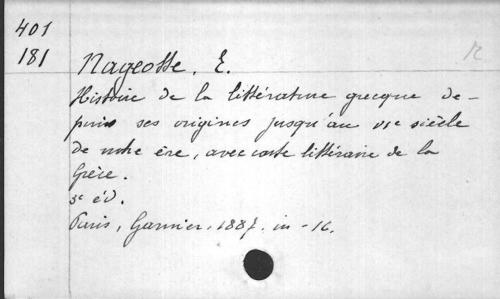 401
181
Nageotte, E.
Histoire de la littérature grecque de-
puis ses origines jusqu'au VIe siècle
de notre ère, avec carte littéraire de la
Grèce.
3e éd.
Paris, Garnier, 1887. in-16.